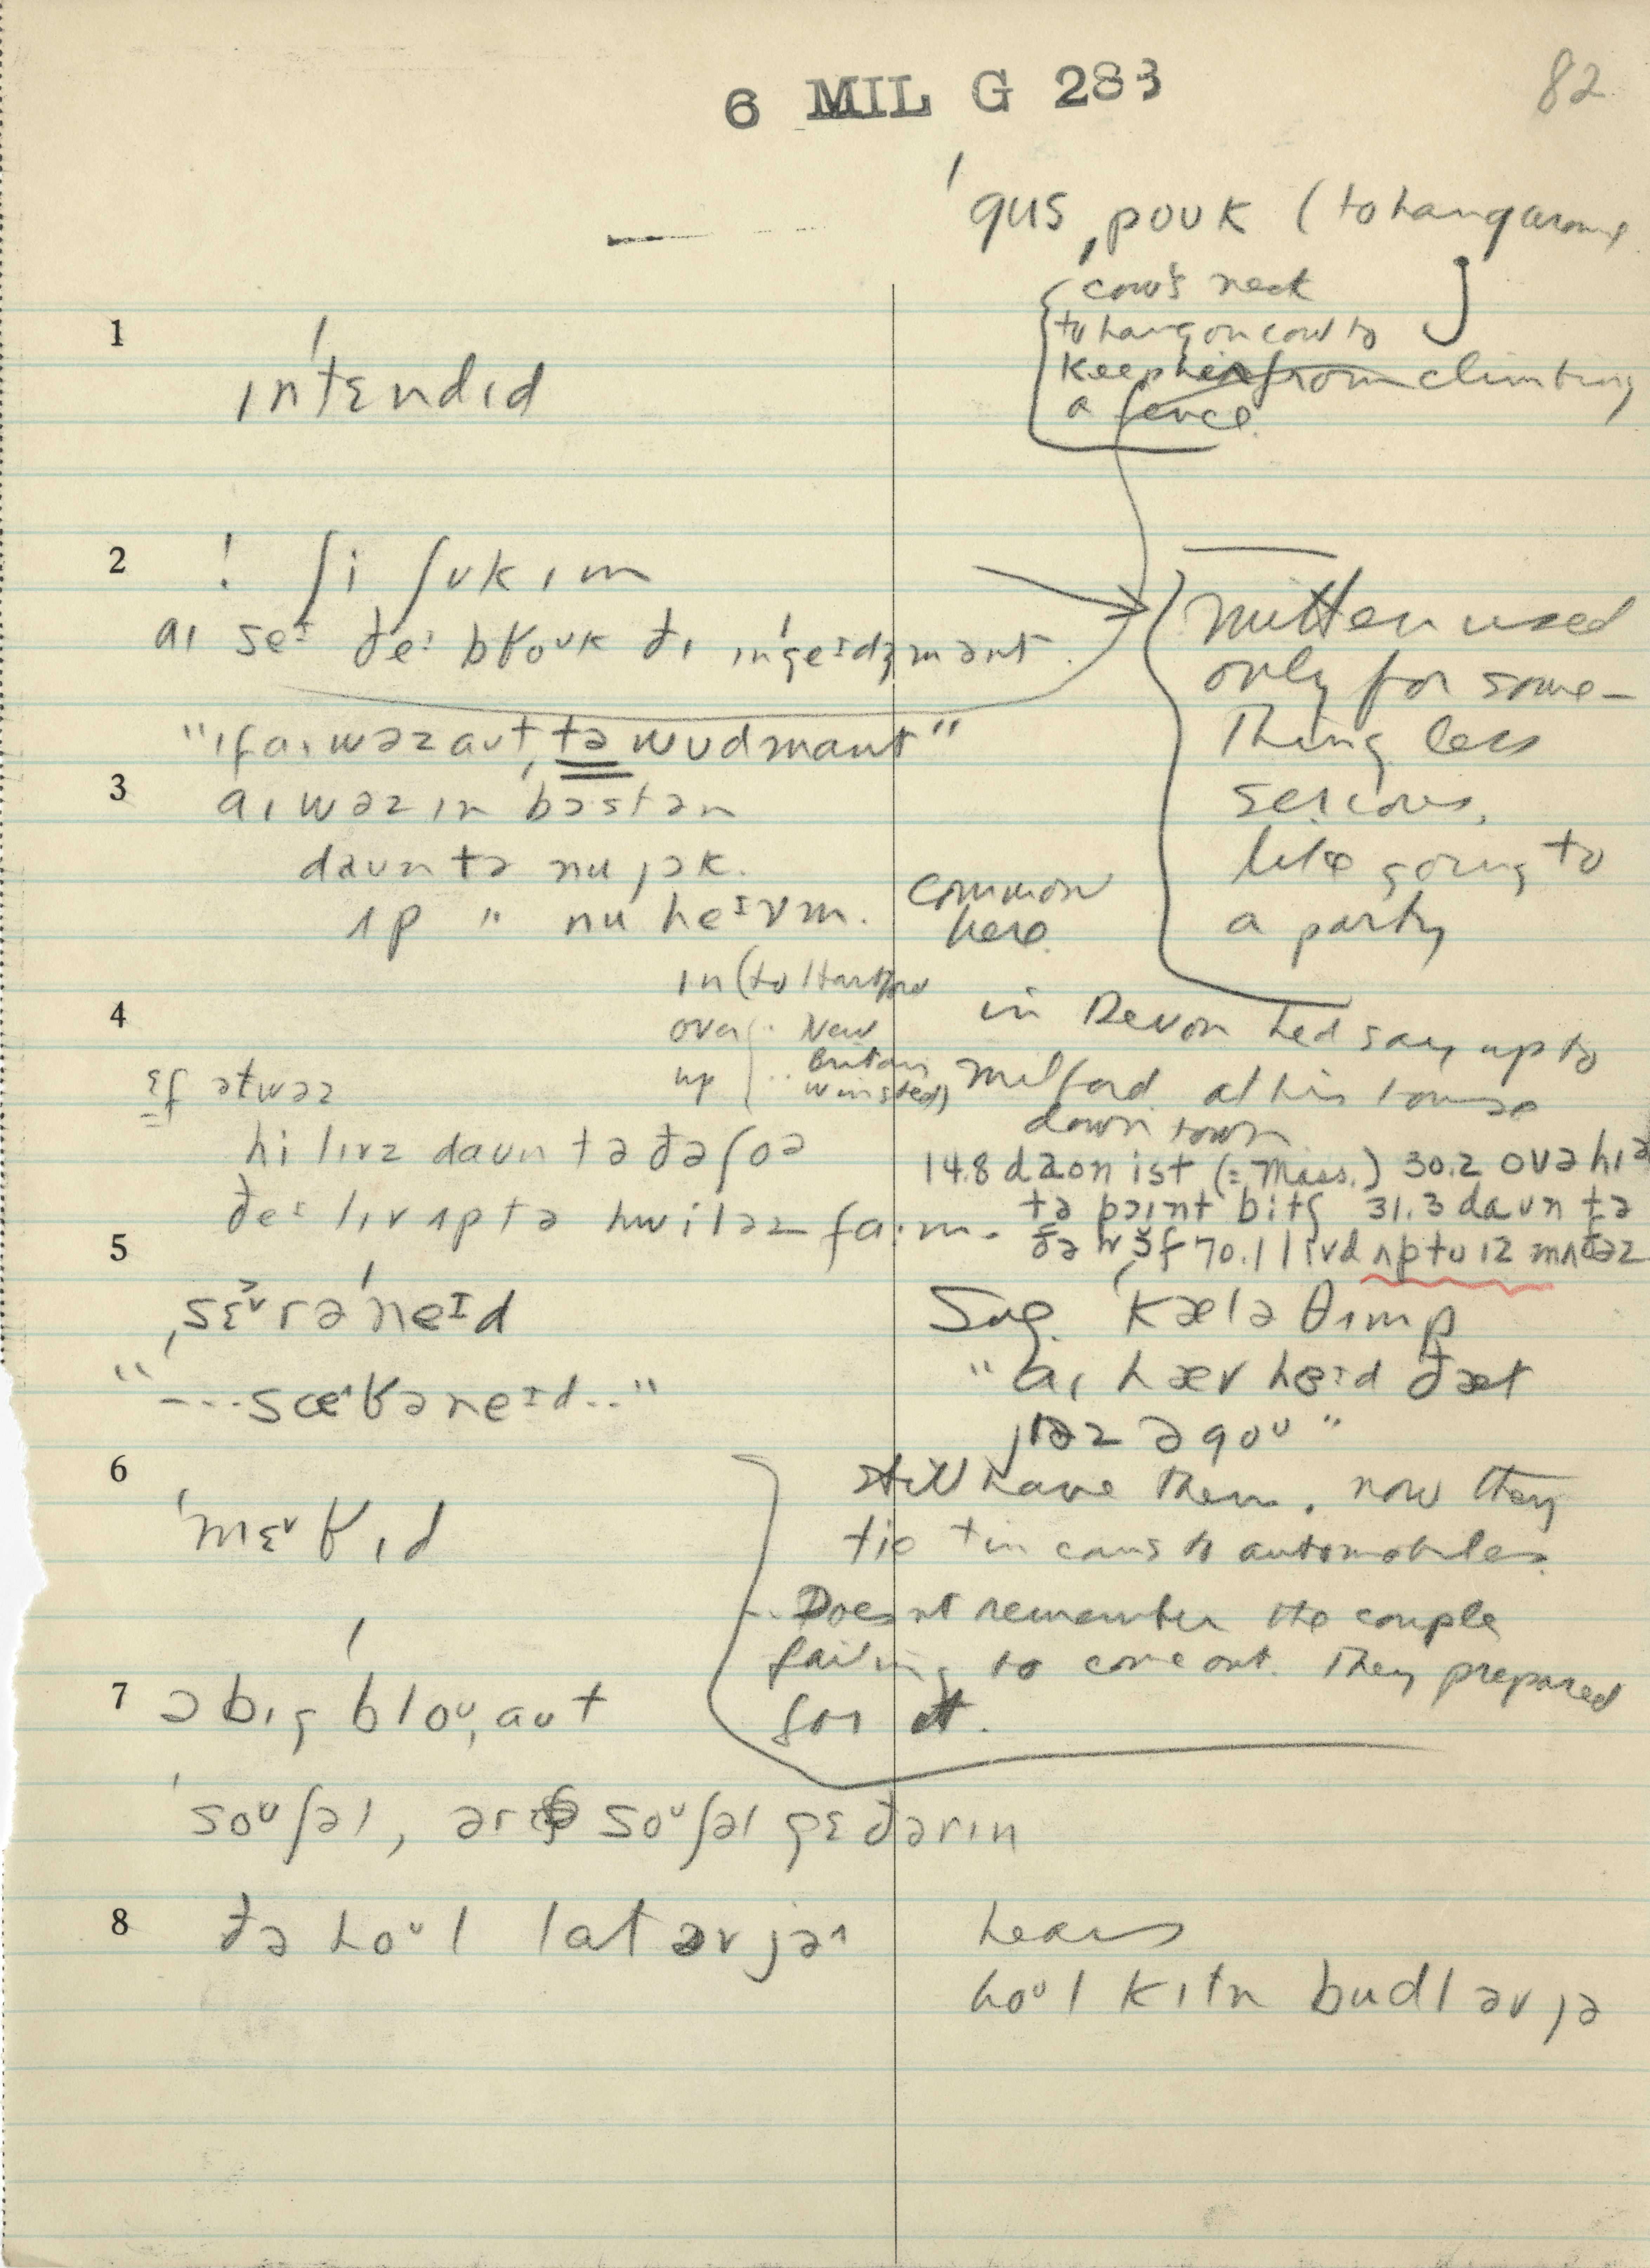 6 MIL G 283
82
ˈgus ˌpoʊk (to hang around
cow's neck
to hang on cow to
keep her from climbing
a fence.
1
ɪnˈtɛndɪd
2
! ʃi ʃʊk ɪm
aɪ seɪ ðeɪ bɹoʊk ðɪ ɪnˈgeɪdʒmənt.
mitten used
only for some-
thing less
serious,
like going to
a party
"ɪf aɪ wəz aʊt, tə wʊdmənt"
3
aɪ wəz ɪn ˈbɔstən
daʊn tə nu jɔk.
ʌp " nu heɪvm.
common
here.
4
in (to Hartford
over .. New
Britain
up .. Winsted)
in Devon he'd say up to
Milford at his house
down town.
ɛf ət wəz
hi lɪvz daʊn tə ðə ʃoə
ðeɪ lɪv ʌp tə hwiləz fa·m.
14.8 daon ist (= Mass.) 30.2 ovə hɪə
tə pɔɪnt bitʃ 31.3 daʊn tə
70.1 lɪvd ʌp tu 12 mʌðəz
5
ˌsɛ̌ᵛrəˈneɪd
"---sæᶺɹəneɪd.."
Sug. ˈkæləθʌmp
"aɪ hæv heəd ðæt
jɪəz əgoʊ"
6
ˈmɛᵛɹɪd
still have them. now they
tie tin cans to automobiles.
Doesnt remember the couple
failing to come out. They prepared
for it.
7
ə bɪg ˈbloʊˌaʊt
ˈsoʊʃəl, soʊʃəl gɛðərɪn
8
ðə hoʊl lat əv jəɪ
hears
hoʊl kɪtn budl əv jə